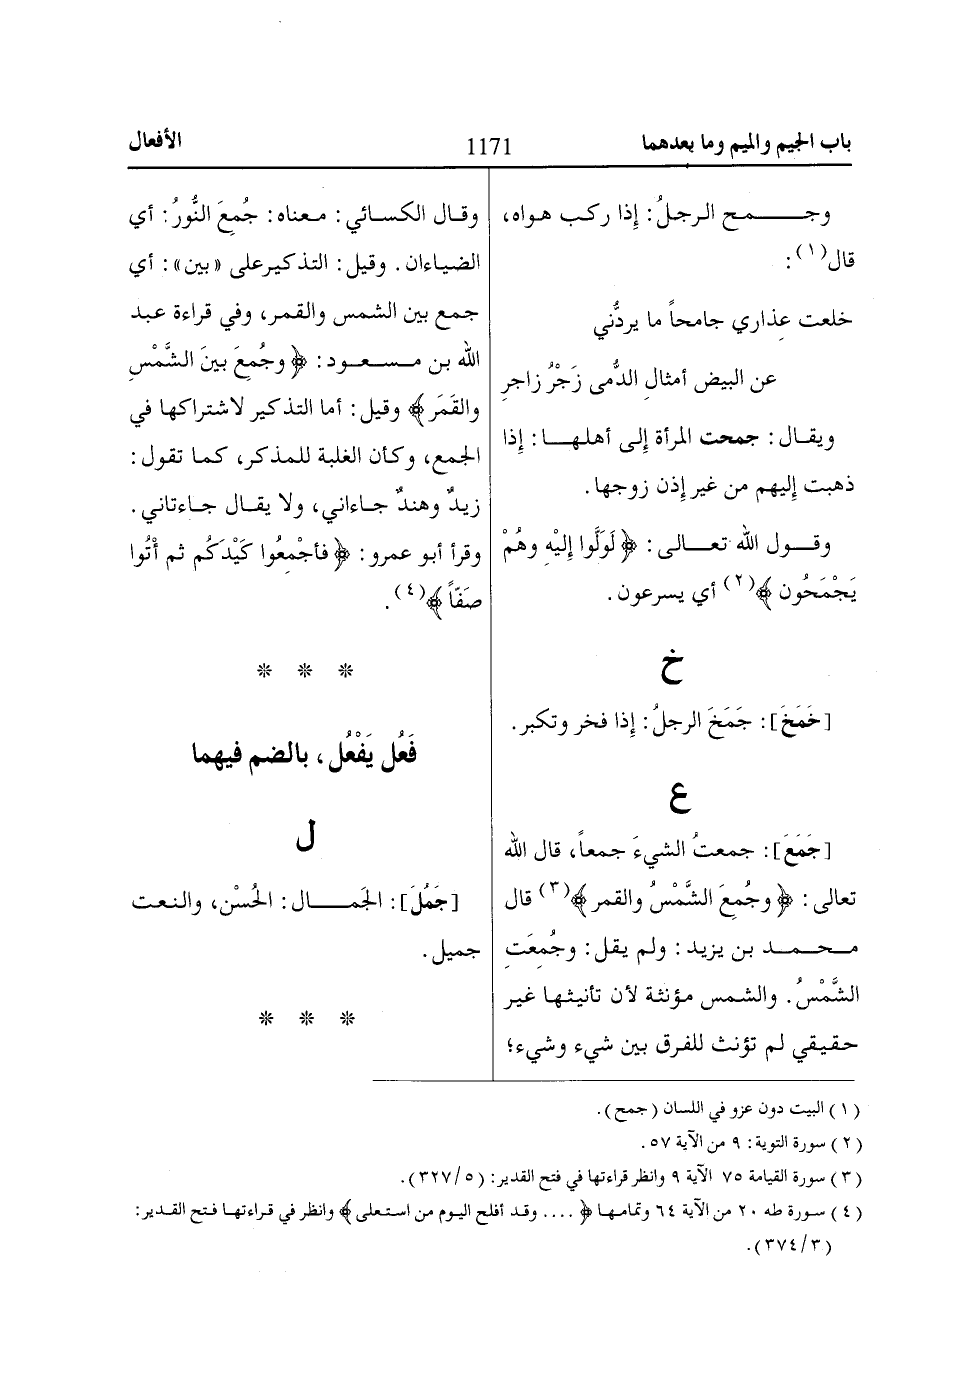 باب الجيم والميم وما بعدهما 1171 الأفعال
وجـــمح الرجلُ: إذا ركب هواه،
قال(١):
خلعت عِذاري جامحاً ما يردُّني
عن البيض أمثالِ الدُّمى زَجْرُ زاجرِ
ويقال: جمحت المرأة إلى أهلها: إذا
ذهبت إليهم من غير إذن زوجها.
وقول الله تعالى: ﴿لَوَلَّوا إليْهِ وهُمْ
يَجْمَحُون﴾(٢) أي يسرعون.
خ
[خَمَخَ]: جَمَخَ الرجلُ: إذا فخر وتكبر.
ع
[جَمَعَ]: جمعتُ الشيءَ جمعاً، قال الله
تعالى: ﴿وجُمِعَ الشَّمْسُ والقمر﴾(٣) قال
محمد بن يزيد: ولم يقل: وجُمِعَتِ
الشَّمْسُ. والشمس مؤنثة لأن تأنيثها غير
حقيقي لم تؤنث للفرق بين شيء وشيء؛
وقال الكسائي: معناه: جُمِعَ النُّورُ: أي
الضياءان. وقيل: التذكيرعلى «بين»: أي
جمع بين الشمس والقمر، وفي قراءة عبد
الله بن مسعود: ﴿وجُمِعَ بينَ الشَّمْسِ
والقَمَر﴾ وقيل: أما التذكير لاشتراكها في
الجمع، وكأن الغلبة للمذكر، كما تقول:
زيدٌ وهندٌ جاءاني، ولا يقال جاءتاني.
وقرأ أبو عمرو: ﴿فأجْمِعُوا كَيْدَكُم ثم أتُوا
صَفّاً﴾(٤).
* * *
فَعُل يَفْعُل، بالضم فيهما
ل
[جَمُلَ]: الجَمال: الحُسْن، والنعت
جميل.
* * *
(١) البيت دون عزو في اللسان (جمح).
(٢) سورة التوبة: ٩ من الآية ٥٧.
(٣) سورة القيامة ٧٥ الآية ٩ وانظر قراءتها في فتح القدير: (٥/٣٢٧).
(٤) سورة طه ٢٠ من الآية ٦٤ وتمامها ﴿.... وقد أفلح اليوم من استعلى﴾ وانظر في قراءتها فتح القدير:
(٣/٣٧٤).